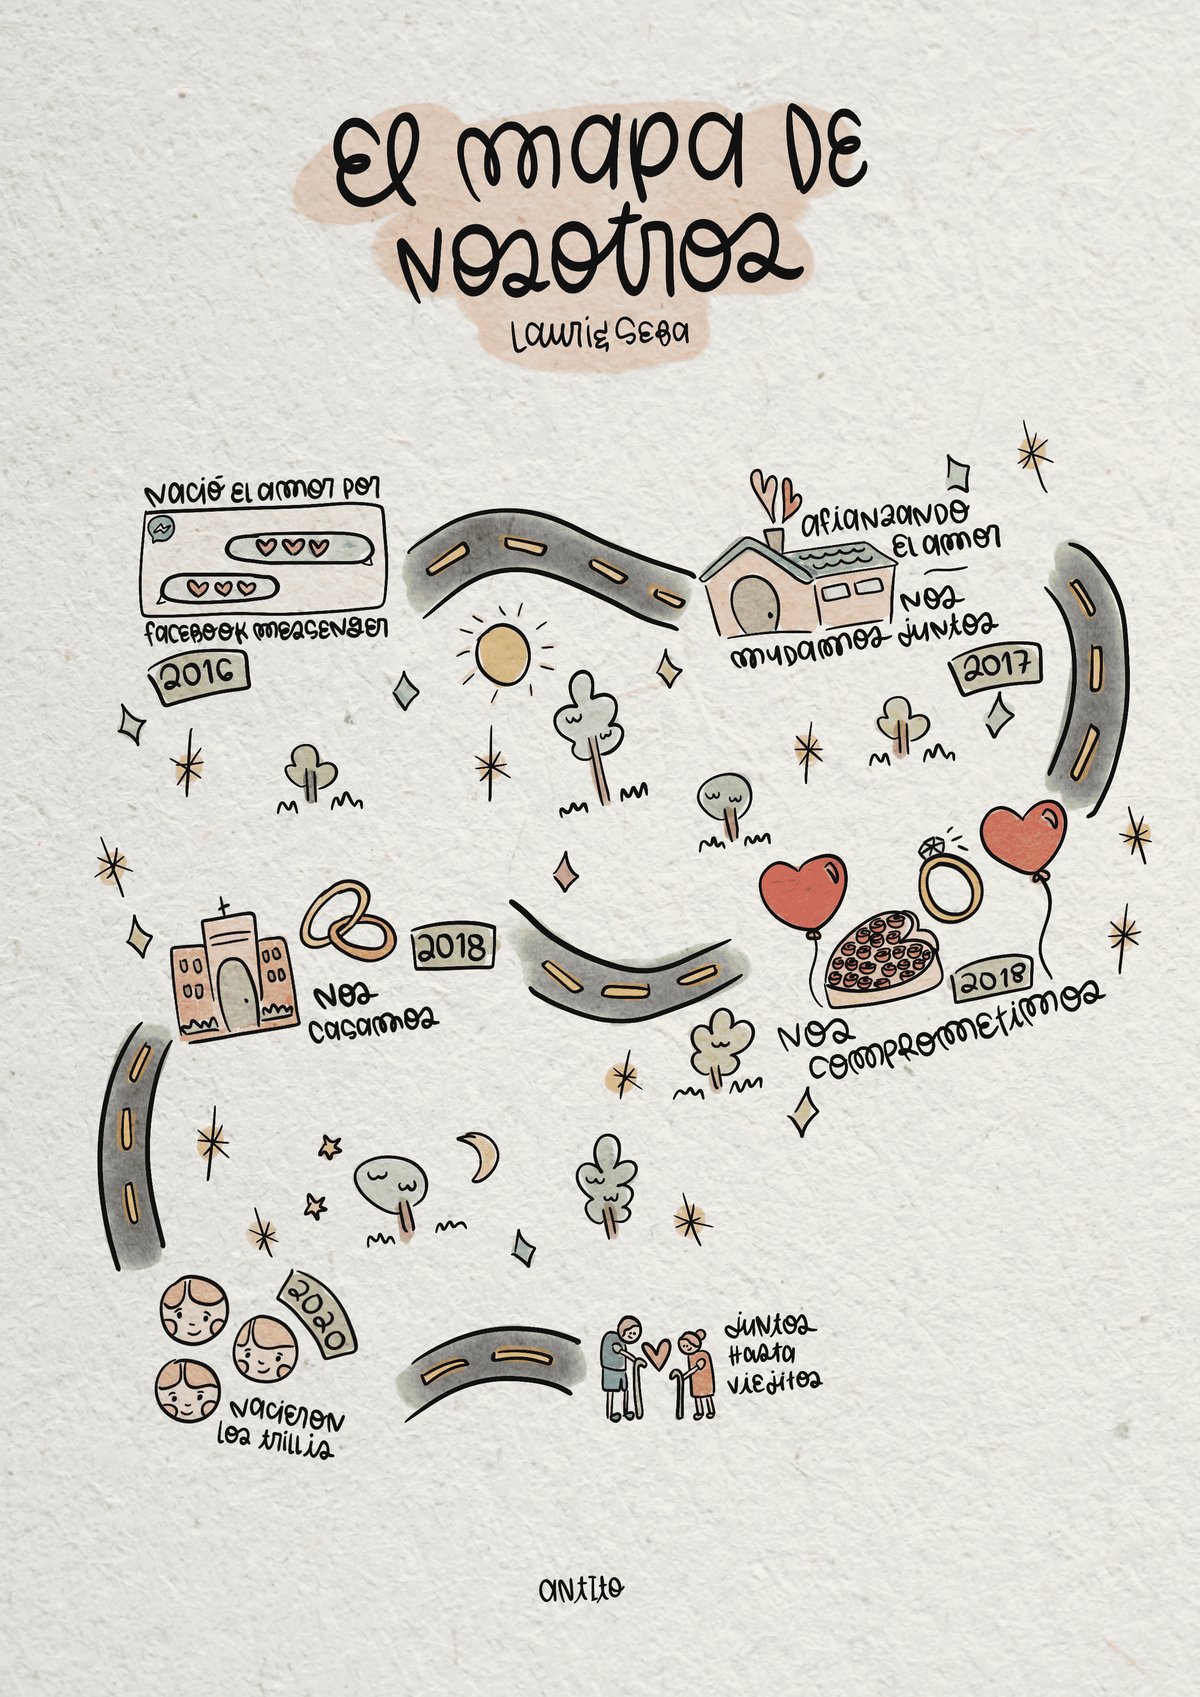 El mapa de
nosotros
Lauri & Seba
Nació el amor por
facebook messenger
2016
afianzando
el amor
nos
mudamos juntos
2017
2018
nos
comprometimos
2018
nos
casamos
2020
nacieron
los trillis
juntos
hasta
viejitos
antito